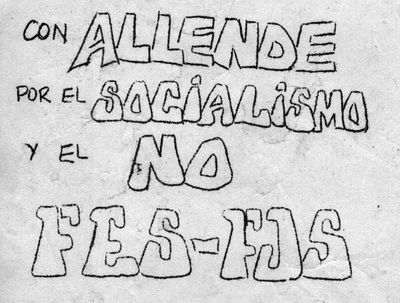 CON ALLENDE
POR EL SOCIALISMO
Y EL NO
FES-FJS